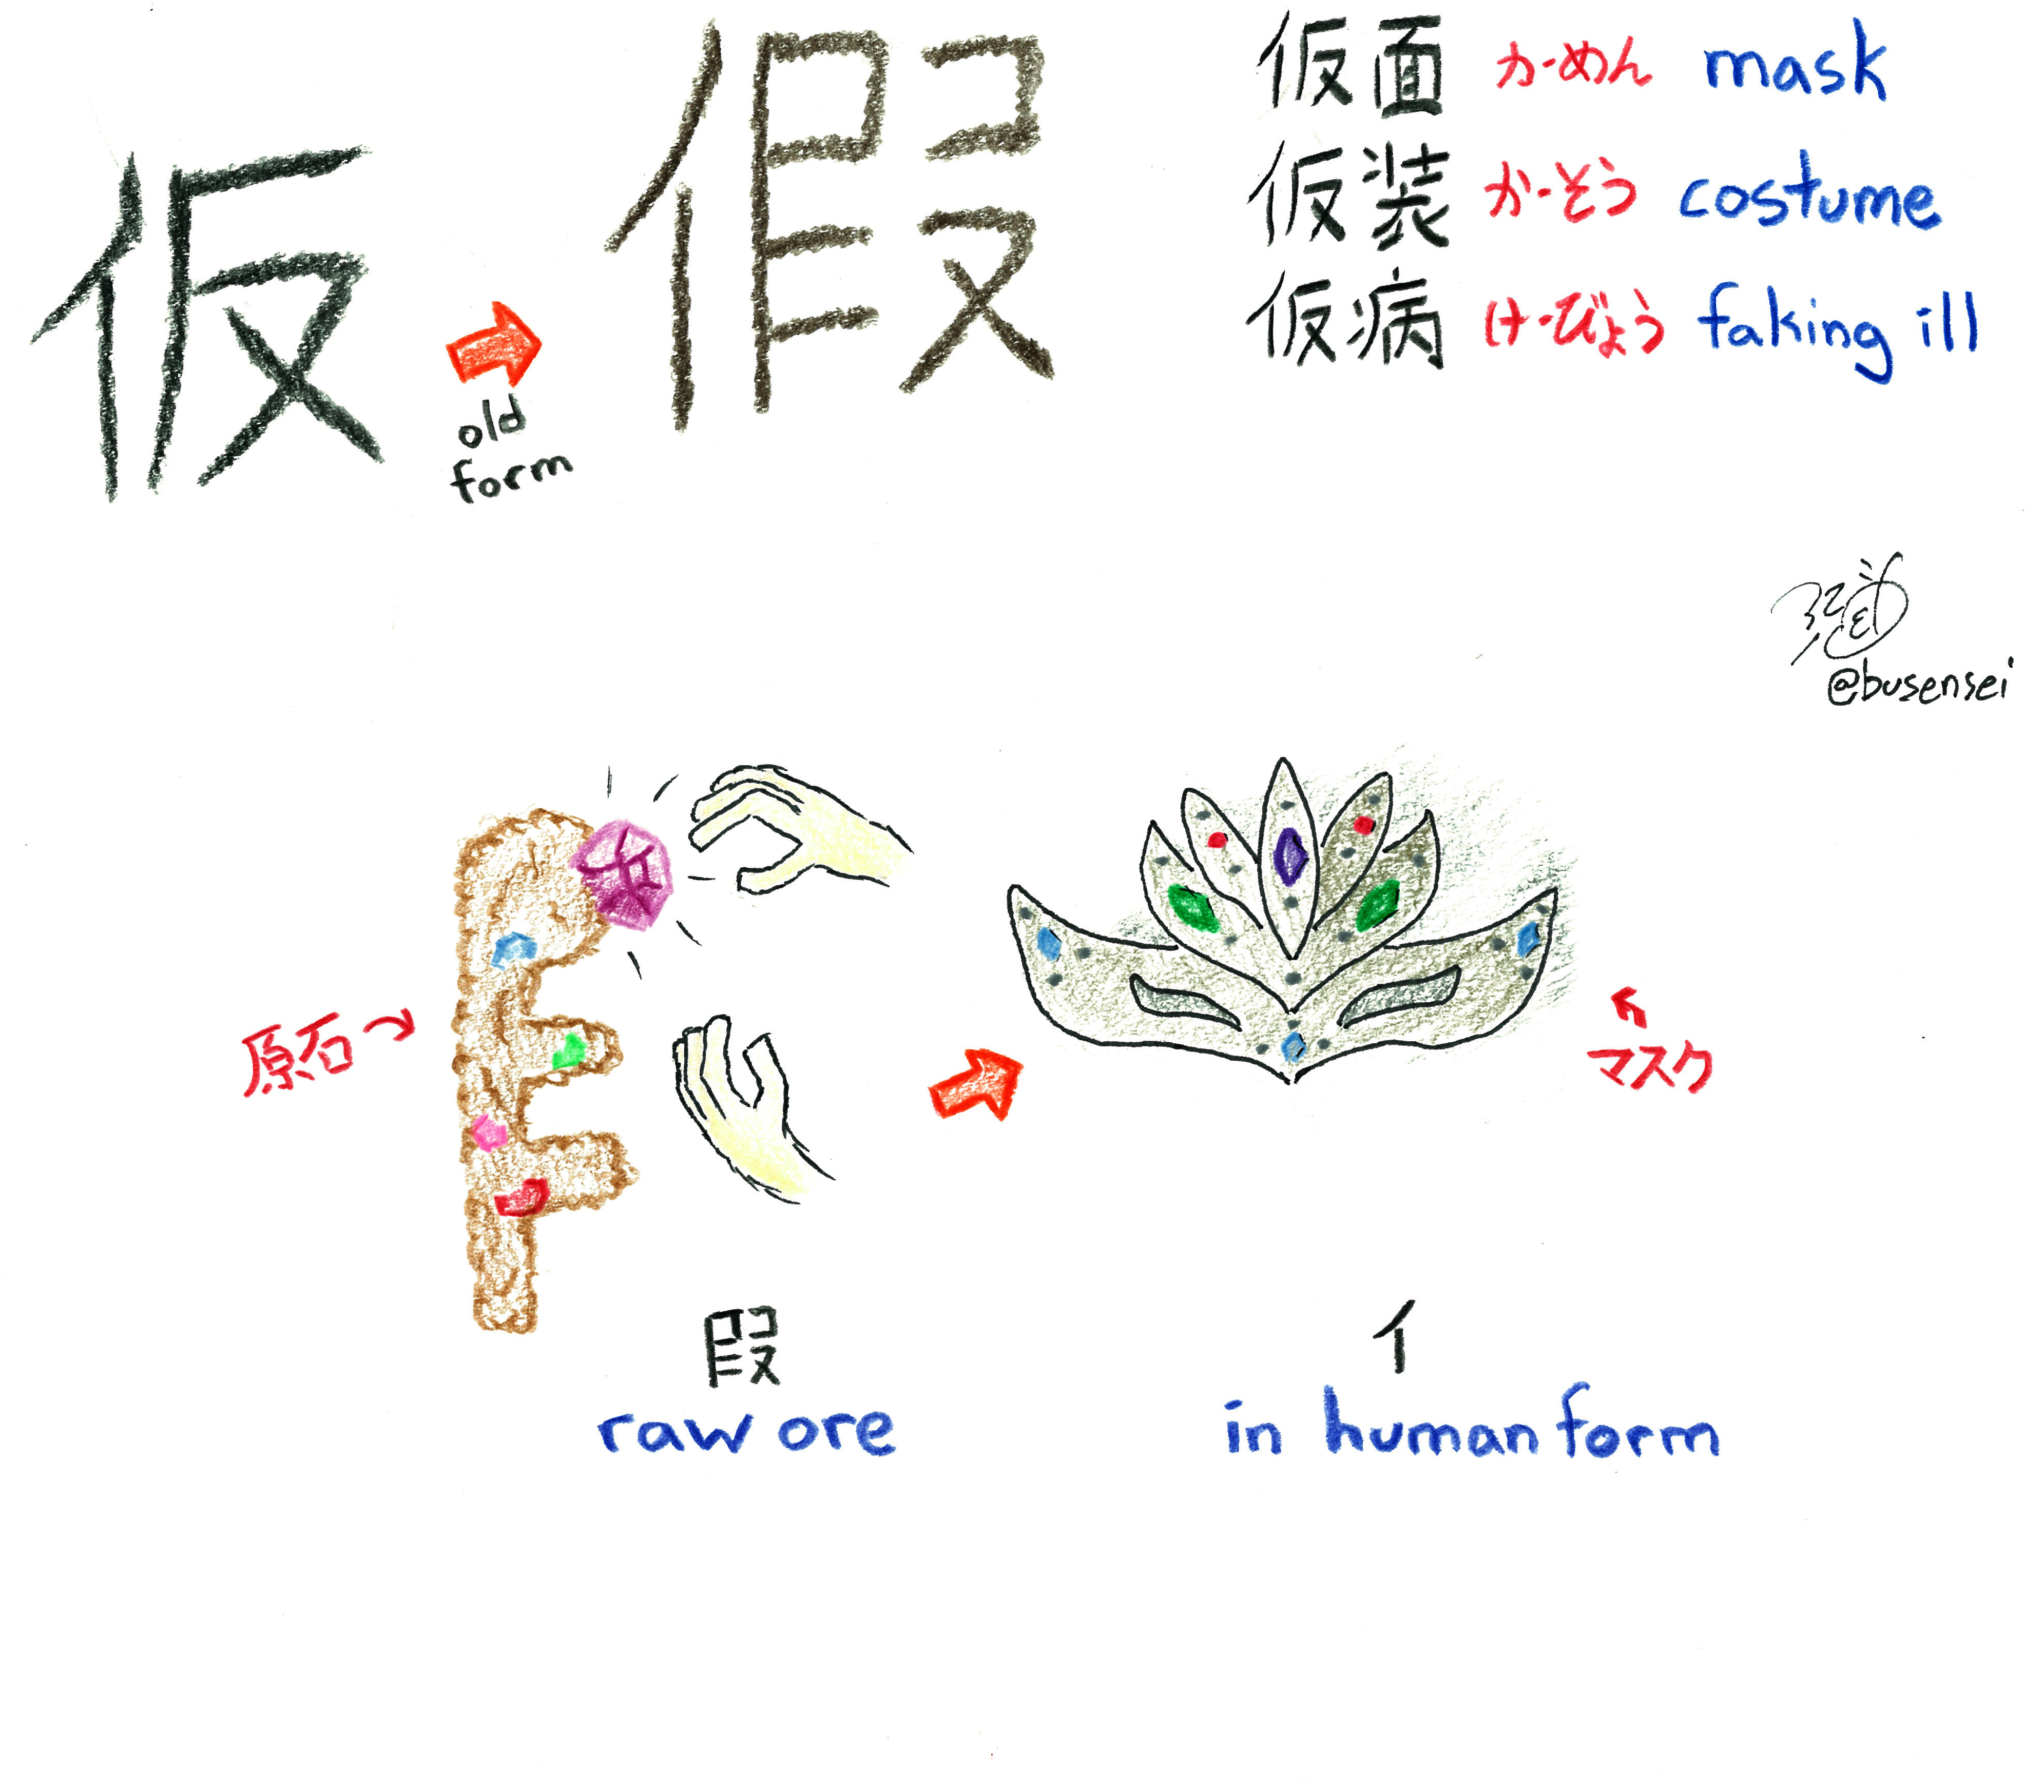 仮
old
form
假
仮面 か-めん mask
仮装 か-そう costume
仮病 け-びょう faking ill
@busensei
原石
マスク
叚
raw ore
亻
in human form